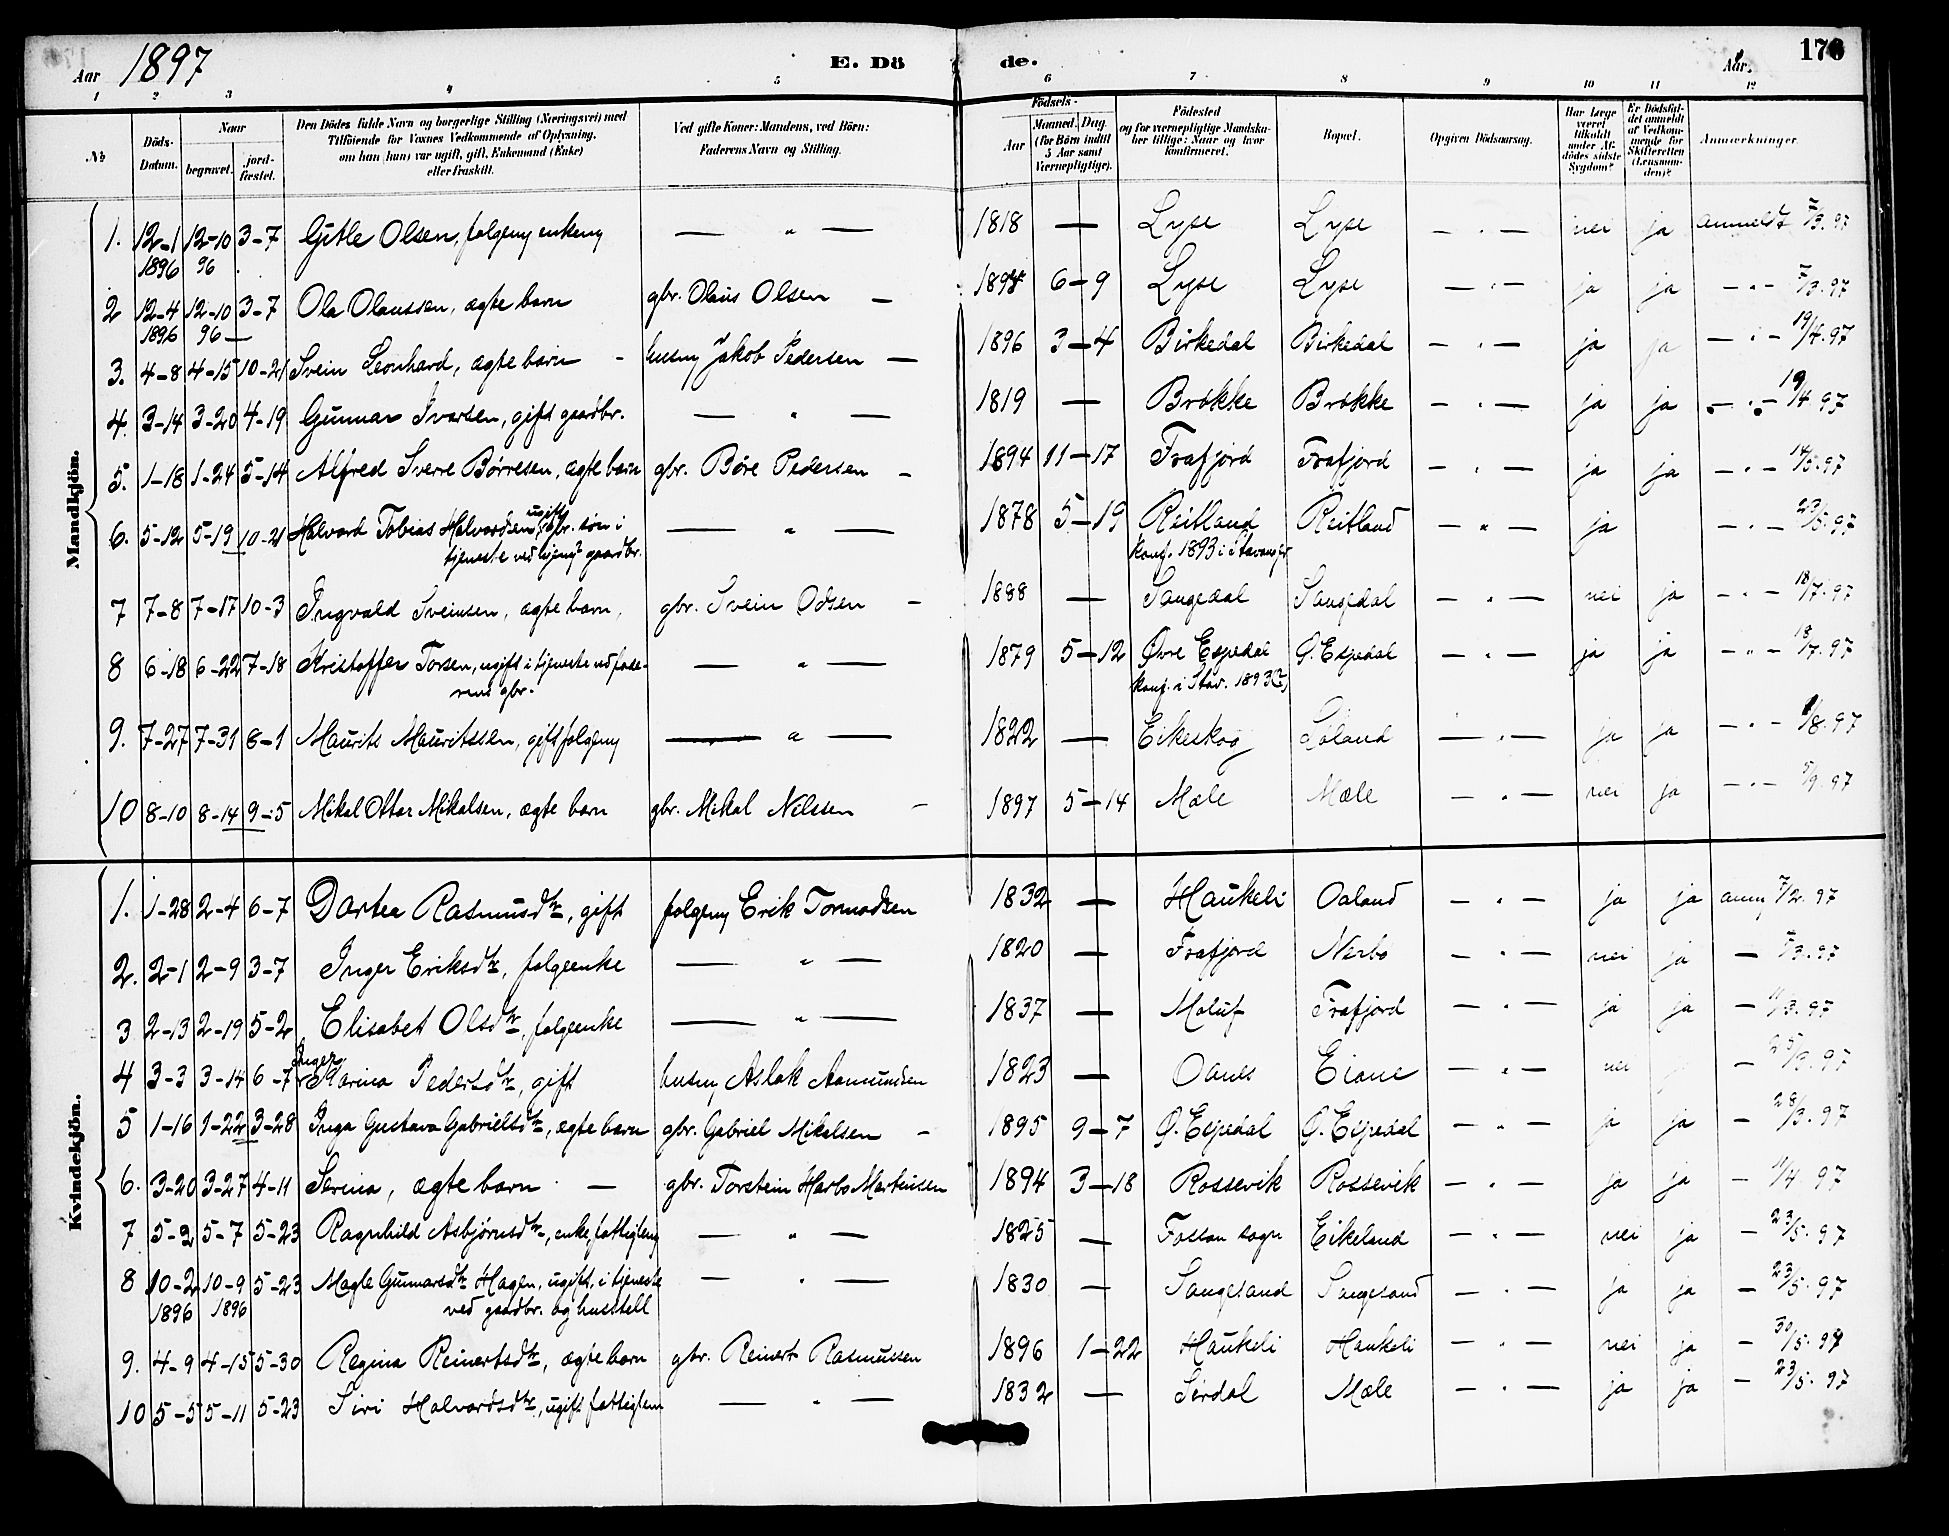 Aar 1897 E. Dö de. Aar. 176
1 2 3 4 5 6 7 8 9 10 11 12
No
Döds-Datum.
Naar
begravet.
jord-fæstet.
Den Dödes fulde Navn og borgerlige Stilling (Næringsvei) med
Tilföiende for Voxnes Vedkommende af Oplysning,
om han (hun) var ugift, gift, Enkemand (Enke)
eller fraskilt.
Ved gifte Koner: Mandens, ved Börn:
Faderens Navn og Stilling.
Födsels-
Aar
Maaned. Dag.
(for Börn indtil
5 Aar samt
Værnepligtige).
Födested
og for værnepligtige Mandska-
ber tillige: Naar og hvor
konfirmeret.
Bopæl.
Opgiven Dödsaarsag.
Har Læge
været
tilkaldt
under Af-
dödes sidste
Sygdom?
Er Dödsfal-
det anmeldt
af Vedkom-
mende for
Skifteretten
(Lensman-
den)?
Anmærkninger.
Mandkjön.
1. 12-1 1896 12-10 96 3-7 Gitle Olsen, folgem enkem — " — 1818 — Lyse Lyse — " — nei ja anmeldt 7/3.97
2 12-4 1896 12-10 96 — 3-7 Ola Olaussen, ægte barn gbr. Olaus Olsen — 1894 6-9 Lyse Lyse — " — ja ja — " — 7/3.97
3. 4-8 4-15 10-21 Svein Leonhard, ægte barn - husm Jakob Pedersen — 1896 3-4 Birkedal Birkedal — " — ja ja — " — 19/4.97
4. 3-14 3-20 4-19 Gunnar Ivarsen, gift gaardbr. — " — 1819 — Brokke Brokke — " — ja ja — " — 19/4 97
5. 1-18 1-24 5-14 Alfred Sverre Børresen, ægte barn gbr. Børe Pedersen — 1894 11-17 Frafjord Frafjord — " — ja ja — " — 14/5.97
6. 5-12 5-19 10-21 Halvard Tobias Halvardsen, ugift gbr. søn i
tjeneste ved gaardbr. — " — 1878 5-19 Reitland Reitland — " — ja — " — 23/5.97
konf. 1893 i Stavanger
7 7-8 7-17 10-3 Ingvald Sveinsen, ægte barn, gbr. Svein Odsen — 1888 — Sangedal Sangedal — " — nei ja — " — 18/7.97
8 6-18 6-22 7-18 Kristoffer Torsen, ugift i tjeneste ved fade-
rens gbr. — " — 1879 5-12 Øvre Espedal Ø. Espedal — " — ja ja — " — 18/7.97
konf. i Stav. 1893 (?)
9. 7-27 7-31 8-1 Maurits Mauritssen, gift folgem — " — 1822 — Eikeskog Løland — " — ja ja — " — 1/8.97
10 8-10 8-14 9-5 Mikal Ottar Mikalsen, ægte barn gbr. Mikal Nilssen — 1897 5-14 Mæle Mæle — " — nei ja — " — 5/9.97
Kvindekjön.
1. 1-28 2-4 6-7 Dortea Rasmusdtr, gift folgem Erik Tormodsen 1832 — Haukeli Oaland — " — ja ja anm 7/2.97
2. 2-1 2-9 3-7 Inger Eriksdtr, folgeenke — " — 1820 — Frafjord Nærbo — " — nei ja — 7/3.97
3 2-13 2-19 5-2 Elisabet Olsdtr, folgeenke — " — 1837 — Moluf Frafjord — " — ja ja — /3.97
4 3-3 3-14 6-7 Inger Karina Pedersdtr, gift husm Aslak Aamundsen 1823 — Oanes Eiane — " — nei — 25/3.97
5 1-16 1-22 3-28 Inga Gustava Gabrielsdtr, ægte barn gbr. Gabriel Mikalsen — 1895 9-7 Ø. Espedal Ø. Espedal — " — ja ja — 28/3.97
6. 3-20 3-27 4-11 Serina, ægte barn — gbr. Torstein Harbo Martinsen 1894 3-18 Rossevik Rossevik — " — ja ja — 11/4 97
7 5-2 5-7 5-23 Ragnhild Asbjørnsdtr, enke, fattiglem — " — 1825 — Fossan sogn Eikeland — " — nei ja — 23/5.97
8 10-2 1896 10-9 1896 5-23 Magle Gunnarsdtr Hagen, ugift, i tjeneste
ved gaardbr. og husstell — " — 1830 — Sangesand Sangesand — " — ja ja — 23/5.97
9. 4-9 4-15 5-30 Regina Reinertsdtr, ægte barn gbr. Reinert Rasmussen 1896 1-22 Haukeli Haukeli — " — nei ja — 30/5.97
10 5-5 5-11 5-23 Siri Halvardsdtr, ugift fattiglem — " — 1832 — Sirdal Mæle — " — ja ja — 23/5.97